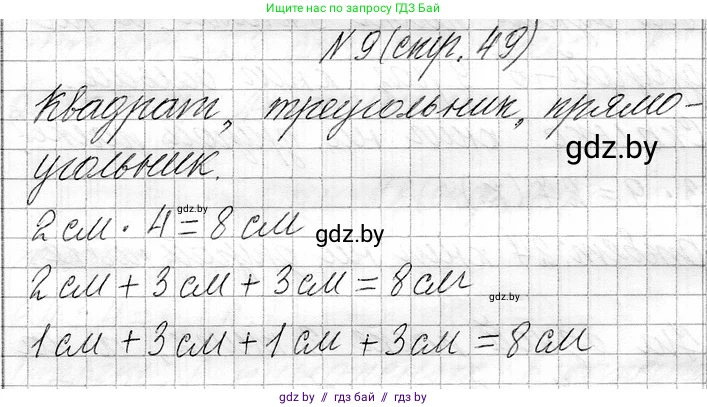 Ищите нас по запросу ГДЗ БАЙ
N 9 (стр. 49)
Квадрат, треугольник, прямо-
gdz.by
угольник.
gdz.by
2 см · 4 = 8 см
gdz.by
2 см + 3 см + 3 см = 8 см
gdz.by
1 см + 3 см + 1 см + 3 см = 8 см
gdz.by // гдз бай // гдз by